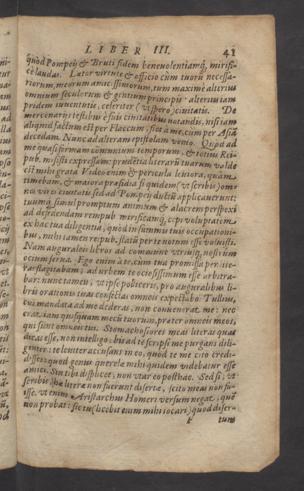 LIBER III. 41
quòd Pompeij & Bruti fidem beneuolentiamq́; mirificè
laudas. Lætor virtute & officio cùm tuorũ necessariorum,
meorum amicissimorum, tum maximè alterius
omnium seculorum & gentium principis: alterius iam
pridem iuuentutis, celeriter (vt spero) ciuitatis. De
mercenarijs testibus è suis ciuitatibus notandis, nisi iam
aliquid factum est per Flaccum, fiet à me, cùm per Asiã
decedam. Nunc ad alteram epistolam venio. Quòd ad
me quasi formam communium temporum, & totius Reipub.
misisti expressam: prudẽtia literarũ tuarum valde
mihi grata. Video enim & pericula leuiora, quàm
timebam, & maiora præsidia siquidem (vt scribis) omnes
vires ciuitatis se ad Pompeij ductũ applicauerunt:
tuumq́; simul promptum animum & alacrem perspexi
ad defendendam rempub. mirificamq́; cepi voluptatem
ex hac tua diligentia, quòd in summis tuis occupationibus,
mihi tamen reipub. statũ per te notum esse voluisti.
Nam augurales libros ad commune vtriusq; nostrum
ocium serua. Ego enim à te, cùm tua promissa per literas
flagitabam, ad vrbem te ociosissimum esse arbitrabar:
nunc tamen, vt ipse polliceris, pro auguralibus libris
orationes tuas confectas omneis expectabo. Tullius,
cui mandata ad me dederas, non conuenerat me: nec
erat iam quisquam mecũ tuorum, præter omneis meos,
qui sunt omnes tui. Stomachosiores meas literas quas
dicas esse, non intelligo: bis ad te scripsi me purgans diligenter:
te leniter accusans in eo, quòd te me citò credidisses:
quod genus querelæ mihi quidem videbatur esse
amici. Sin tibi displicet, non vtar eo posthac. Sed si, vt
scribis, hæ literæ non fuerunt disertæ, scito meas non fuisse.
vt enim Aristarchus Homeri versum negat, quẽ
non probat: sic tu (licebit enim mihi iocari) quod disertum
F tum